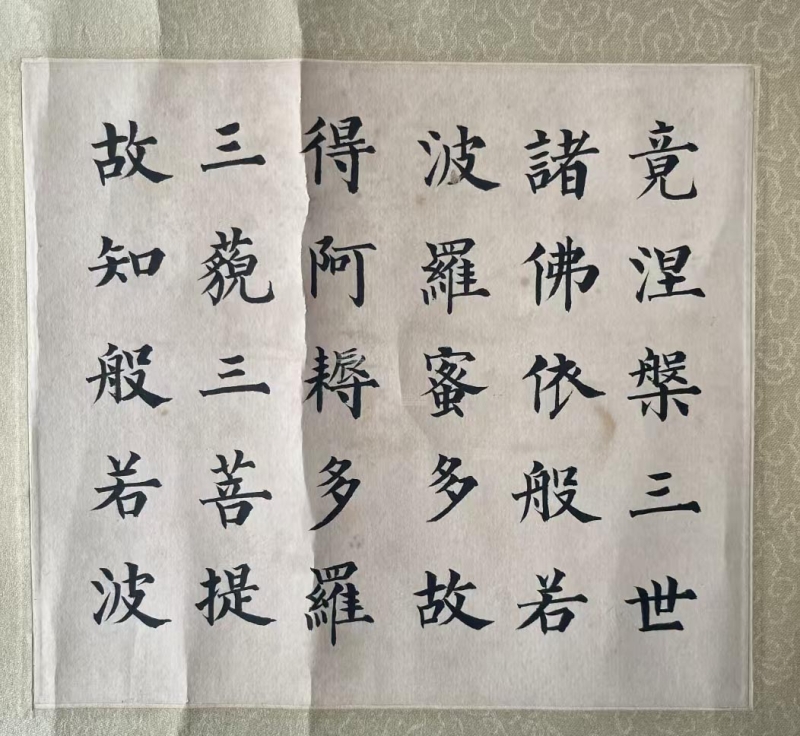 竟涅槃三世
諸佛依般若
波羅蜜多故
得阿耨多羅
三藐三菩提
故知般若波